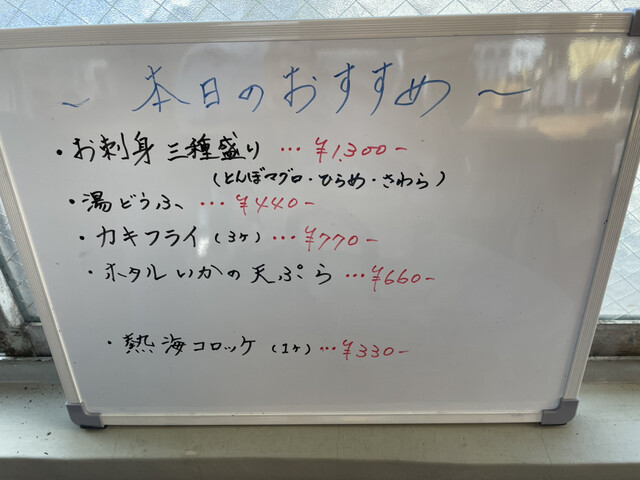 〜 本日のおすすめ 〜
・お刺身 三種盛り …¥1,300-
(とんぼマグロ・ひらめ・さわら)
・湯どうふ …¥440-
・カキフライ (3ヶ) …¥770-
・ホタルいかの天ぷら …¥660-
・熱海コロッケ (1ヶ) …¥330-